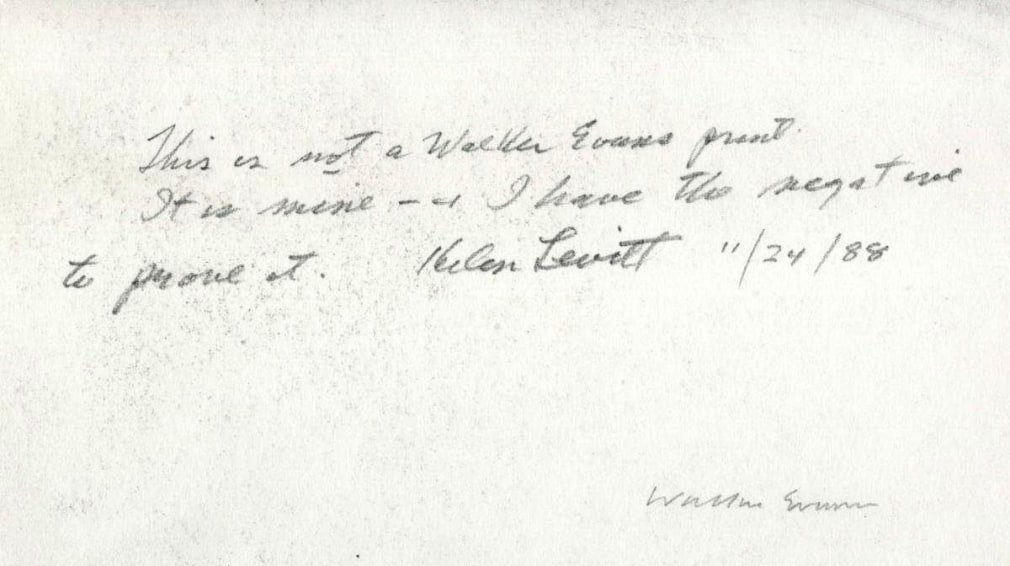 This is not a Walker Evans print.
It is mine -- I have the negative
to prove it. Helen Levitt 11/24/88
Walker Evans